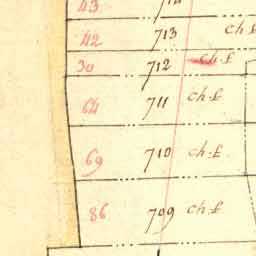 43 714
42 713 ch.f
30 712 ch.f
64 711 ch.f
69 710 ch.f
86 709 ch.f